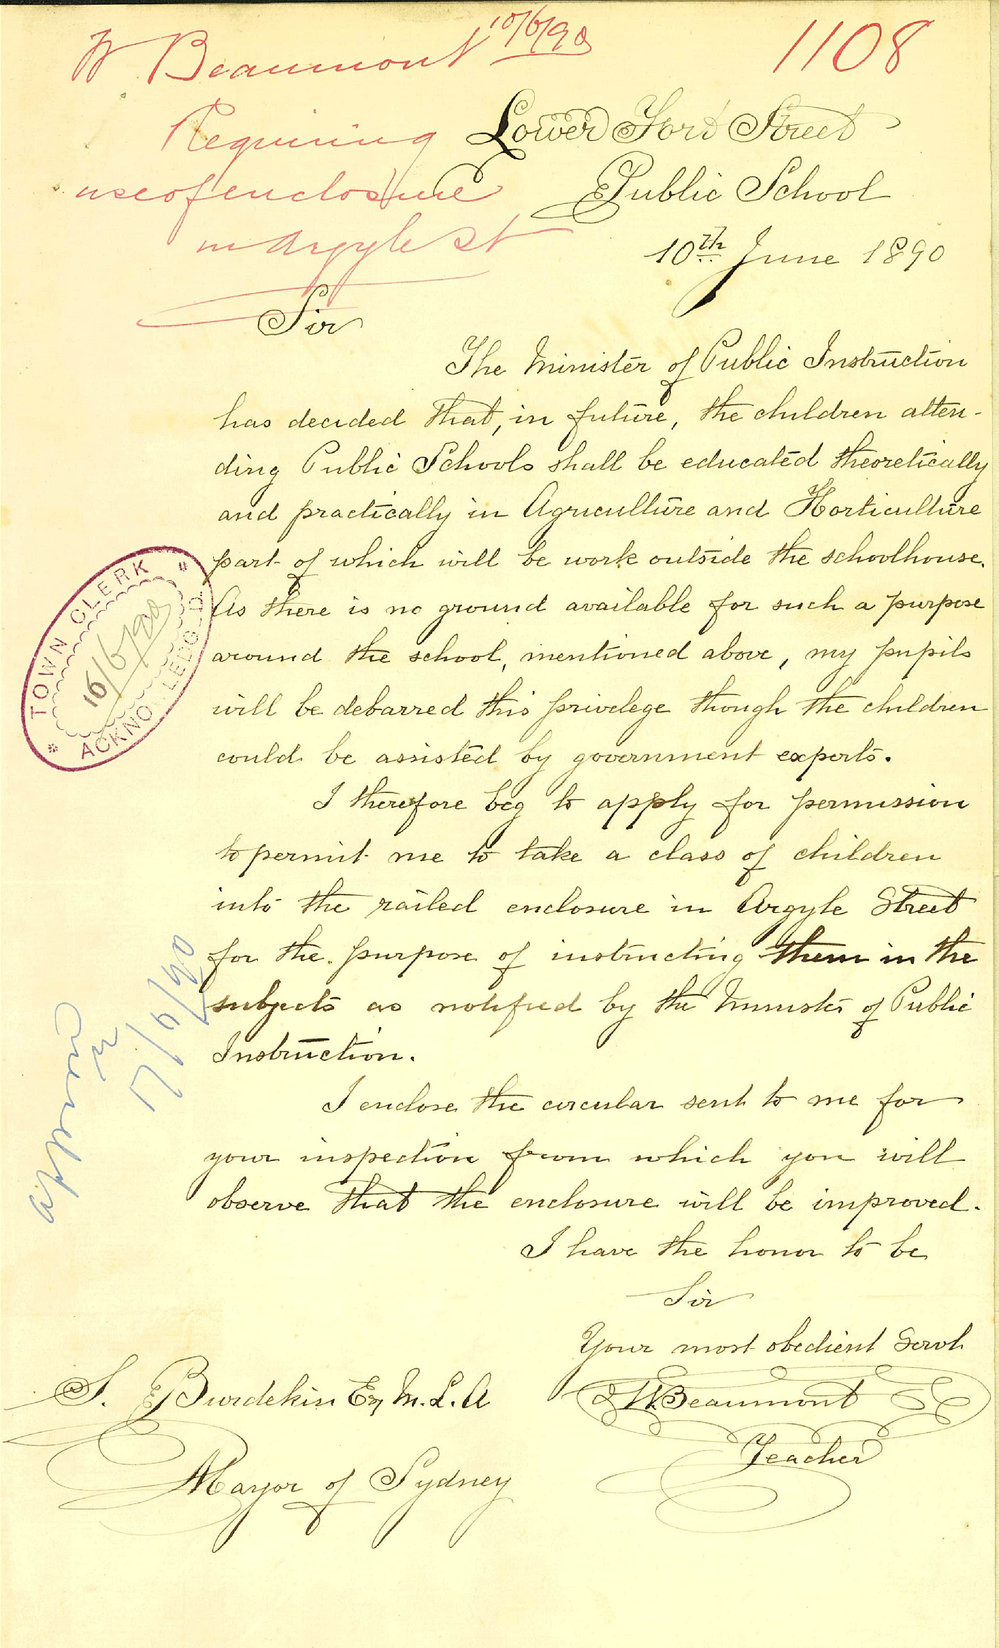 W Beaumont 10/6/90
1108
Requiring
use of enclosure
in Argyle St
Lower Fort Street
Public School
10th June 1890
Sir
The Minister of Public Instruction
has decided that, in future, the children atten-
ding Public Schools shall be educated theoretically
and practically in Agriculture and Horticulture
part of which will be work outside the schoolhouse.
As there is no ground available for such a purpose
around the school, mentioned above, my pupils
will be debarred this privelege though the children
could be assisted by government experts.
I therefore beg to apply for permission
to permit me to take a class of children
into the railed enclosure in Argyle Street
for the purpose of instructing them in the
subjects as notified by the Minister of Public
Instruction.
I enclose the circular sent to me for
your inspection from which you will
observe that the enclosure will be improved.
I have the honor to be
Sir
Your most obedient Servt
W Beaumont
Teacher
S. Burdekin Esq M.L.A
Mayor of Sydney
TOWN CLERK
16/6/90
ACKNO LEDG D
17/6/90